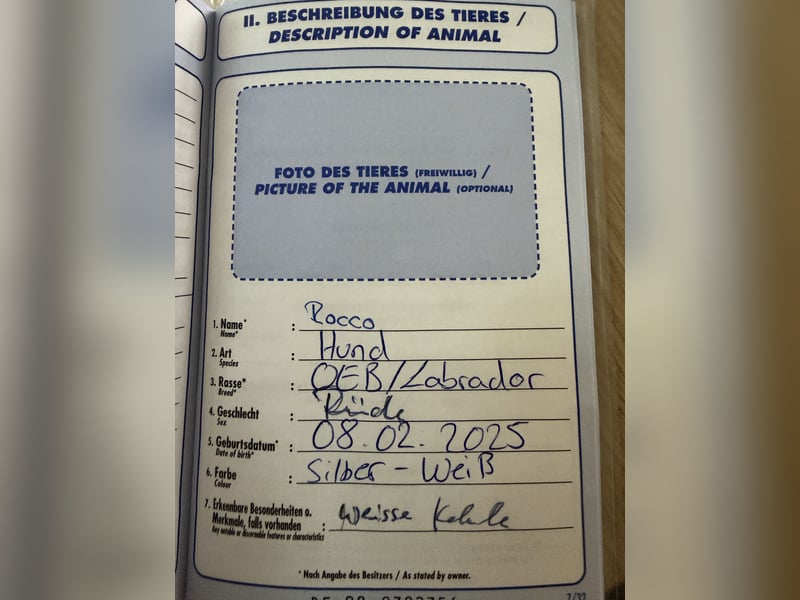 II. BESCHREIBUNG DES TIERES /
DESCRIPTION OF ANIMAL
FOTO DES TIERES (FREIWILLIG) /
PICTURE OF THE ANIMAL (OPTIONAL)
1. Name* : Rocco
Name*
2. Art : Hund
Species
3. Rasse* : OEB/Labrador
Breed*
4. Geschlecht : Rüde
Sex
5. Geburtsdatum* : 08.02.2025
Date of birth*
6. Farbe : Silber - Weiß
Colour
7. Erkennbare Besonderheiten o.
Merkmale, falls vorhanden : Weisse Kehle
Any notable or discernable features or characteristics
* Nach Angabe des Besitzers / As stated by owner.
7/32